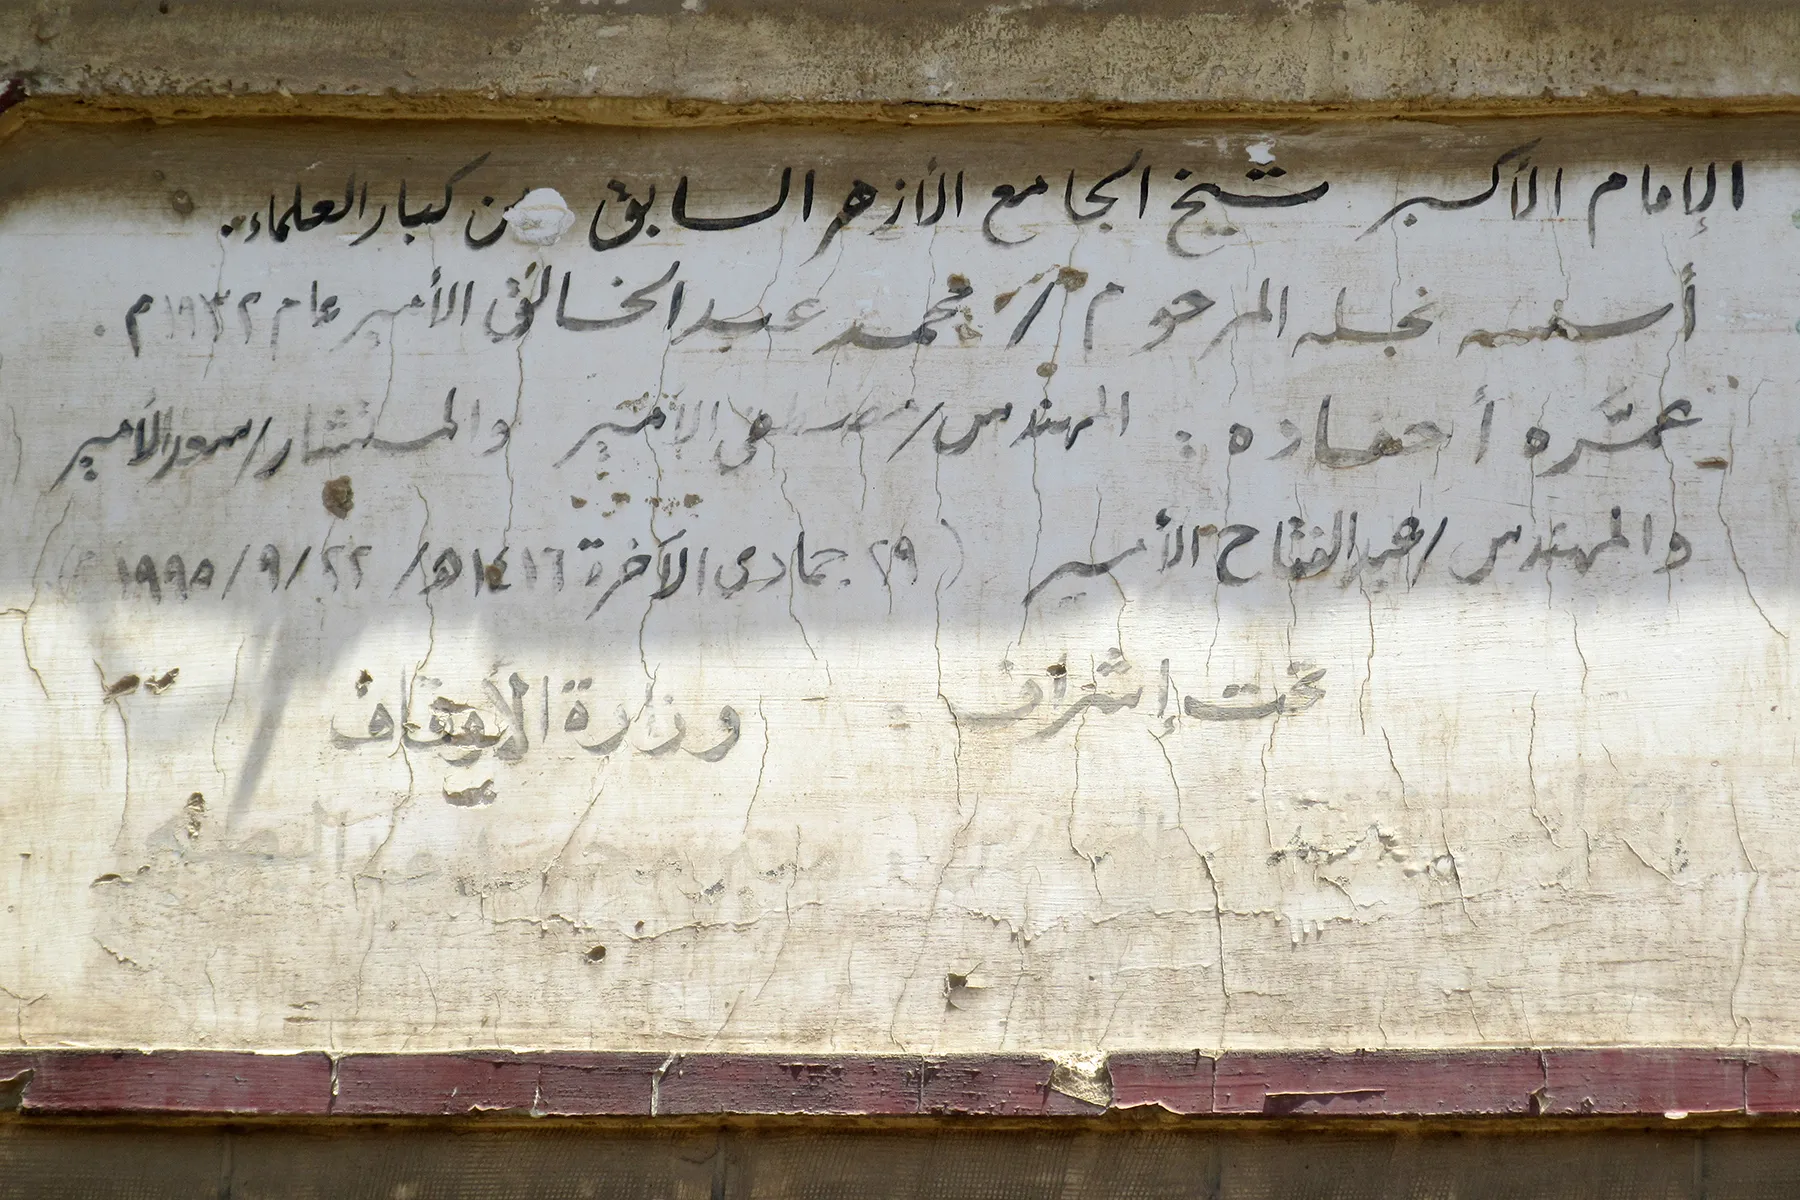 الإمام الأكبر شيخ الجامع الأزهر السابق من كبار العلماء.
أسسه نجله المرحوم / محمد عبد الخالق الأمير عام ١٩٣٢ م.
عمَّره أحفاده : المهندس / مصطفى الأمير والمستشار / سعد الأمير
والمهندس / عبد الفتاح الأمير ( ٢٩ جمادى الآخرة ١٤١٦ هـ / ٢٢ / ٩ / ١٩٩٥ م )
تحت إشراف وزارة الأوقاف